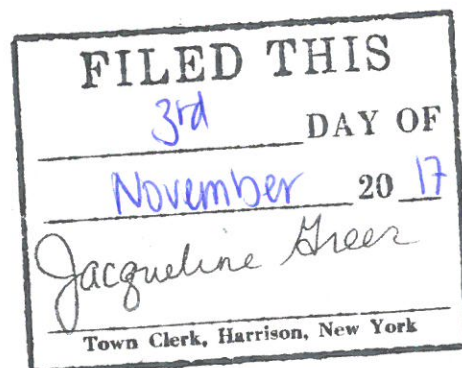 FILED THIS
3rd DAY OF
November 20 17
Jacqueline Greer
Town Clerk, Harrison, New York